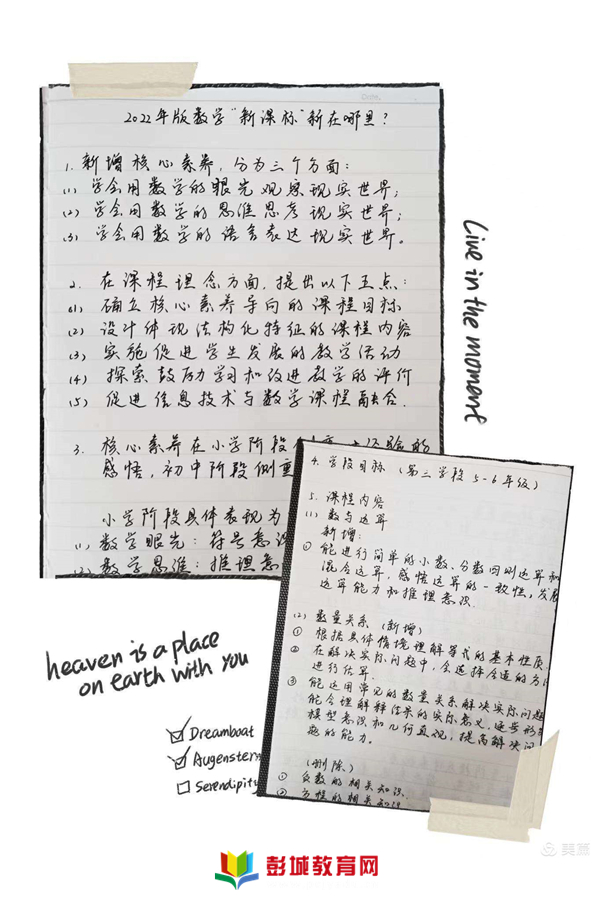 2022年版数学"新课标"新在哪里?
1. 新增核心素养,分为三个方面:
(1) 学会用数学的眼光观察现实世界;
(2) 学会用数学的思维思考现实世界;
(3) 学会用数学的语言表达现实世界。
2. 在课程理念方面,提出以下五点:
(1) 确立核心素养导向的课程目标
(2) 设计体现结构化特征的课程内容
(3) 实施促进学生发展的教学活动
(4) 探索鼓励学习和改进教学的评价
(5) 促进信息技术与数学课程融合.
3. 核心素养在小学阶段 经验的
感悟,初中阶段侧重
小学阶段具体表现为
(1) 数学眼光:符号意识
(2) 数学思维:推理意
Live in the moment
4. 学段目标(第三学段 5-6年级)
5. 课程内容
(1) 数与运算
新增:
① 能进行简单的小数、分数四则运算和
混合运算,感悟运算的一致性,发展
运算能力和推理意识.
(2) 数量关系(新增)
① 根据具体情境理解等式的基本性质.
② 在解决实际问题中,会选择合适的方法
进行估算.
③ 能运用常见的数量关系解决实际问题
能合理解释结果的实际意义,逐步形成
模型意识和几何直观,提高解决问
题的能力。
(删除)
① 反数的相关知识.
② 方程的相关知识
heaven is a place
on earth with you
Dreamboat
Augenstern
Serendipity
美篇
彭城教育网